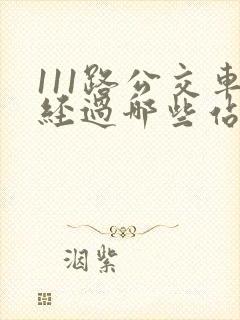 111路公交車
經過哪些佔
洇紫